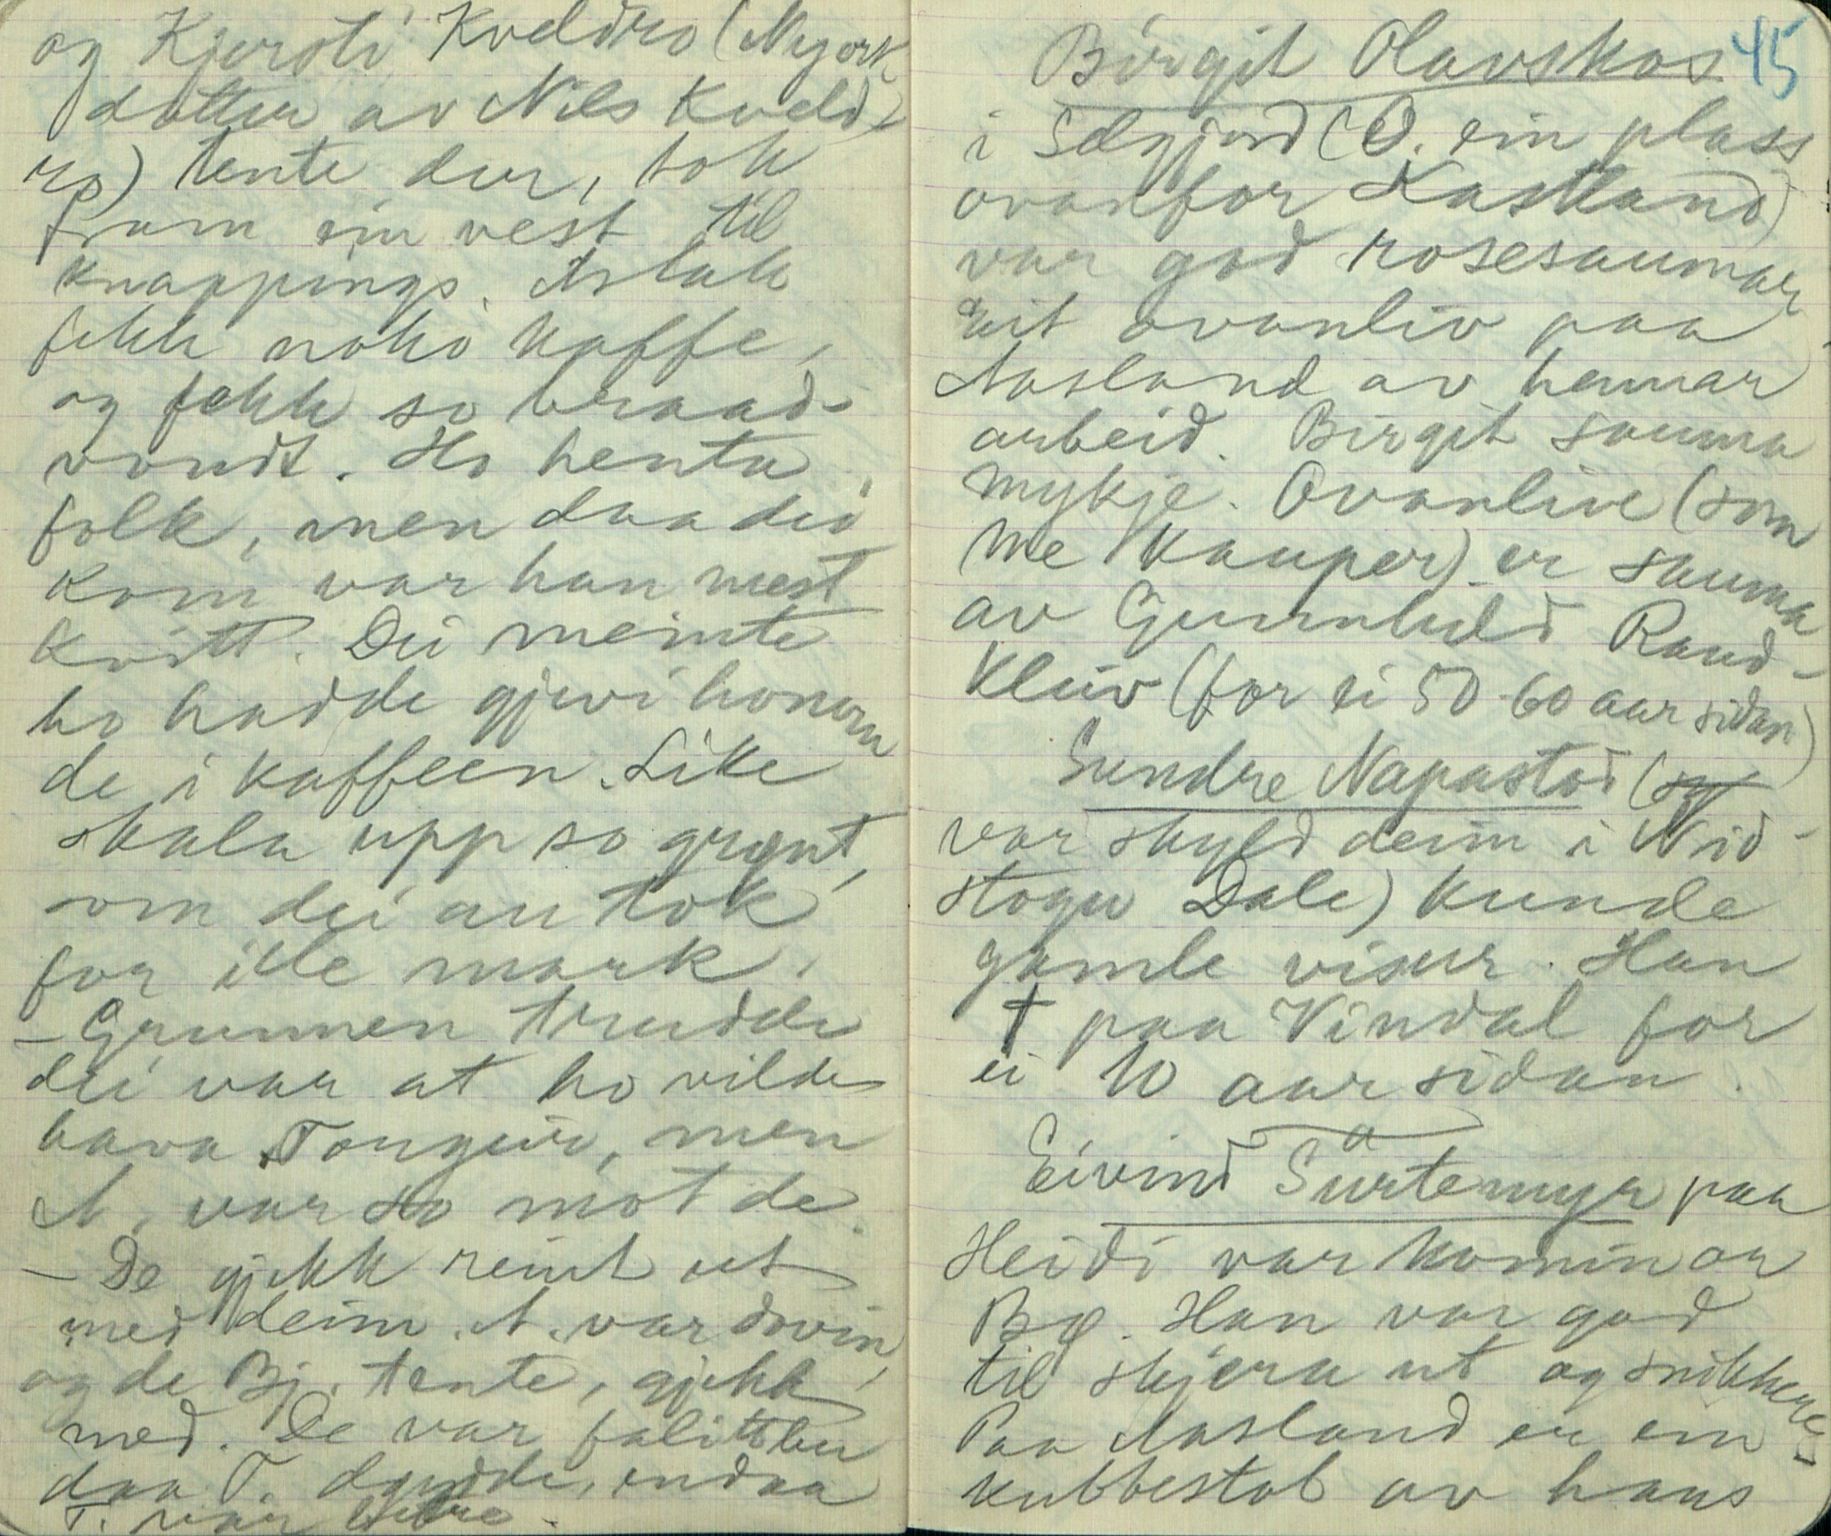 og Kjersti Kveldro (Mejork
dotter av Nils Kveld-
ro) tente der, tok
fram ein vest til
knappings. Aslak
fekk noko kaffe,
og fekk so braad-
vondt. Ho henta
folk, men daa dei
kom var han mest
kvitt. Dei meinte
ho hadde gjevi honom
de i kaffeen. Like
skala upp so grønt,
om dei au tok
for ille mark.
- Grunnen trudde
dei var at ho vilde
hava Tongeir, men
A. var so mot de.
- De gjekk reint ut
med deim. A. var doven,
og de Bj. tente, gjekk
med. De var falitbu
daa T. døydde, endaa
T. var betre.
45
Birgit Olavskos
i Selgjord (O. ein plass
ovanfor Kastland)
var god rosesaumar
Eit ovanliv paa
Aasland av hennar
arbeid. Birgit sauma
mykje. Ovanlive (som
me kauper) er sauma
av Gunnhild Raud-
kleiv (for ei 50-60 aar sidan)
Sundre Napastod (
var skyld deim i Nid-
stogu Dale) kunde
gamle visur. Han
† paa Vindal for
ei 10 aar sidan.
Eivind Surtemyr paa
Heidi var komin or
Bø. Han var god
til skjera ut og snikkere.
Paa Aasland er ein
kubbestol av hans